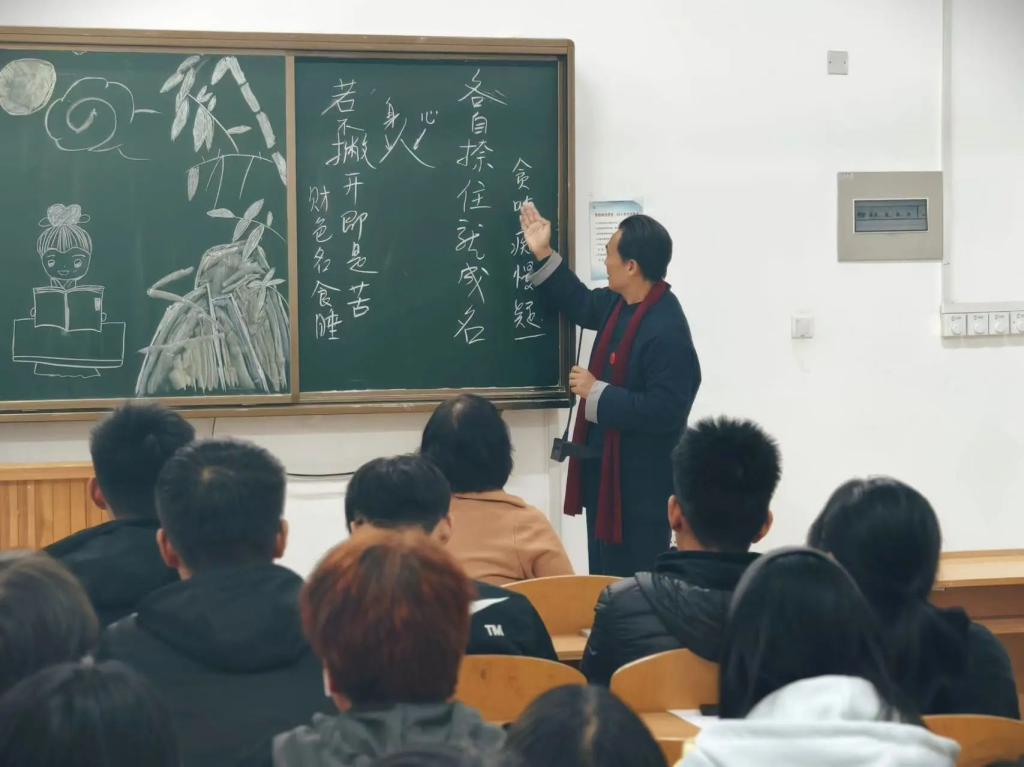 贪慢疑
各自捺住就成名
心
身
人
若不撇开即是苦
财色名食睡
TM